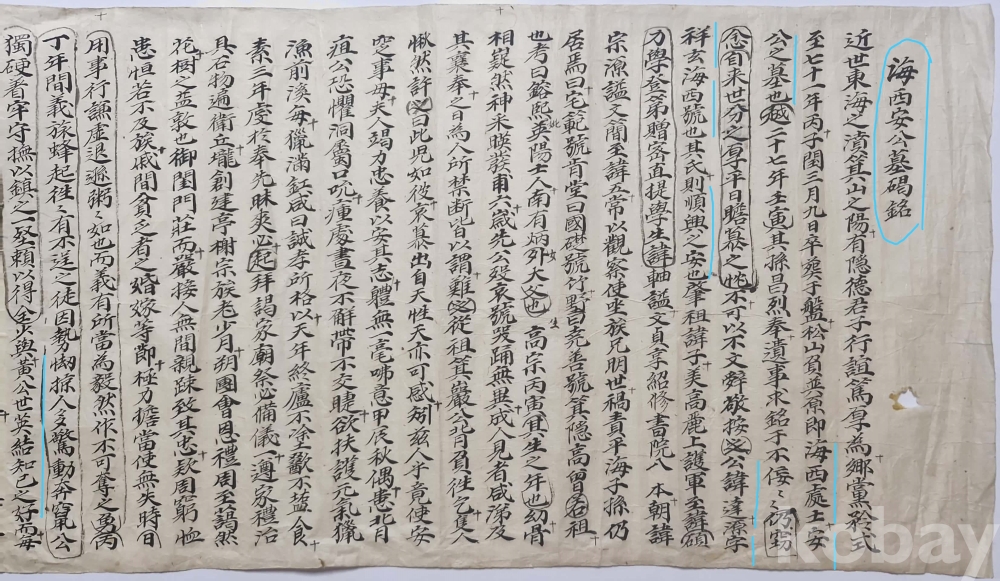 海西安公墓碣銘
近世東海之濱箕山之陽有隱德君子行誼篤厚為鄕黨矜式
至七十一年丙子閏三月九日卒塟于盤松山負艮原即海西處士安
公之墓也越二十七年壬寅其孫昌烈奉遺事求銘于不佞
念昔来世分之厚平日瞻慕之不可以不文辭敬按公諱達源字
祥玄海西號也其氏則順興之安也肇祖諱子美高麗上護軍至諱碩
力學登第贈密直提學生諱軸謚文貞享紹修書院入本朝諱
宗源謚文簡至諱五常以觀察使坐族兄明世禍貢平海子孫仍
居焉曰宅範號肯堂曰國砯號竹墅曰堯善號箕隱高曾名祖
也考曰鎔熙英陽士人南有炳外大父也高宗丙寅其生之年也幼骨
相嶷然神采暎發甫六歲先公歿哀號哭踊無異成人見者咸涕及
其襄奉之日為人所禁斷皆以謂難從祖箕巖公肯負徃乞隻人
愀然許之曰此児如彼哀慕出自天性天亦可感矧玆人乎竟使安
窆事母夫人竭力忠養以安其志體無一毫咈意甲辰秋偶患北月
疽公恐懼洞屬口吮瘇處晝夜不觧帶不交睫欲扶護元氣獵
漁前溪每獵滿缸咸曰誠孝所格以天年終廬不塗歠不盐食
素三年虔於奉先昧爽必起拜謁家廟祭必備儀一遵家禮治
具石物遍衛丘壠創建亭榭宗族老少月朔團會恩禮周至藹然
花樹之益敦也御閨門莊而嚴接人無間親踈致其忠款周窮恤
患恒若不及族戚間貧乏者之婚嫁等即極力擔當使無失時日
用事行謙虛退遜粥粥如也而義有所當為毅然作不可奪之勇丙
丁年間義旅蜂起徃徃有不逞之徒因勢刼掠人多驚動奔竄公
獨硬着牢守撫以鎮之一竪賴以得全少與黃公世英結知己之好而每